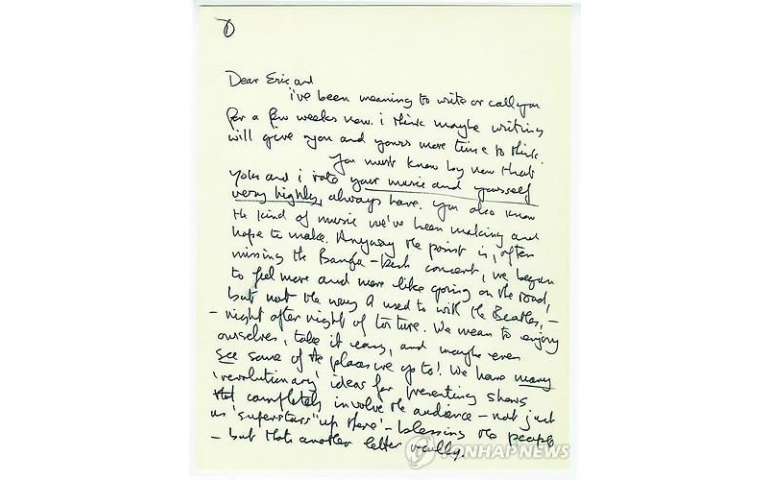 ①
Dear Eric and
i've been meaning to write or call you
for a few weeks now. i think maybe writing
will give you and yours more time to think.
You must know by now that
Yoko and i rate your music and yourself
very highly, always have. You also know
the kind of music we've been making and
hope to make. Anyway the point is, after
missing the Bangla-Desh concert, we began
to feel more and more like going on the road,
but not the way I used to with the Beatles,-
- night after night of torture. We mean to enjoy
ourselves, take it easy, and maybe even
see some of the places we go to! We have many
'revolutionary' ideas for presenting shows
that completely involve the audience - not just
as 'superstars' 'up there' - blessing the people
- but thats another letter really.
YONHAP NEWS